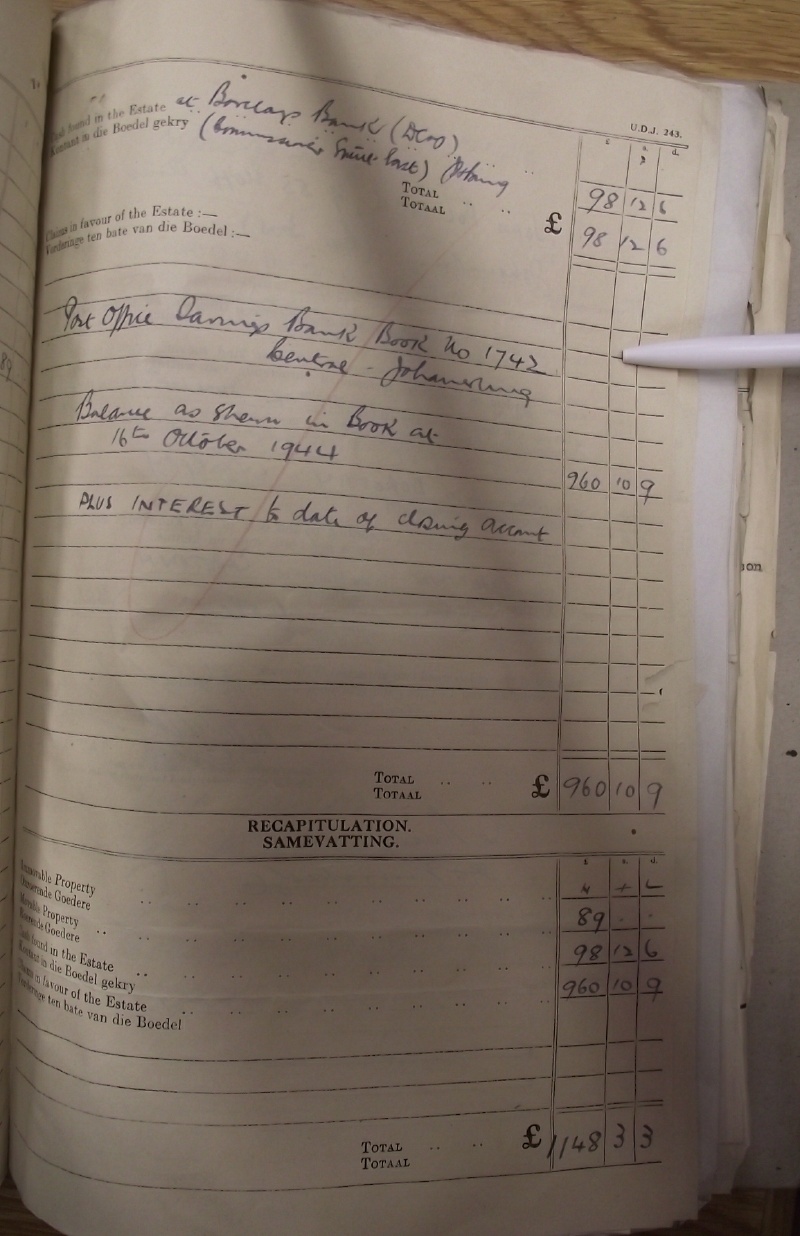 U.D.J. 243.
£ s. d.
found in the Estate at Barclays Bank (DC&O)
Kontant in die Boedel gekry (Commissioner Street East)
98 12 6
TOTAL
TOTAAL £ 98 12 6
Claims in favour of the Estate :—
Vorderinge ten bate van die Boedel :—
Post Office Savings Bank Book No 1742
Central - Johannesburg
Balance as shewn in Book at
16th October 1944 960 10 9
PLUS INTEREST to date of closing account
TOTAL
TOTAAL £ 960 10 9
RECAPITULATION.
SAMEVATTING.
£ s. d.
Immovable Property
Onroerende Goedere
Movable Property 89 - -
Roerende Goedere
Cash found in the Estate 98 12 6
Kontant in die Boedel gekry
Claims in favour of the Estate 960 10 9
Vorderinge ten bate van die Boedel
TOTAL
TOTAAL £ 1148 3 3
89
ion